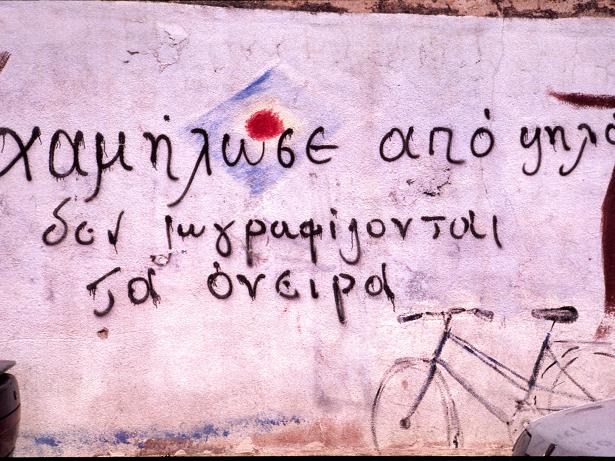 χαμήλωσε από ψηλά
δεν ζωγραφίζονται
τά όνειρα